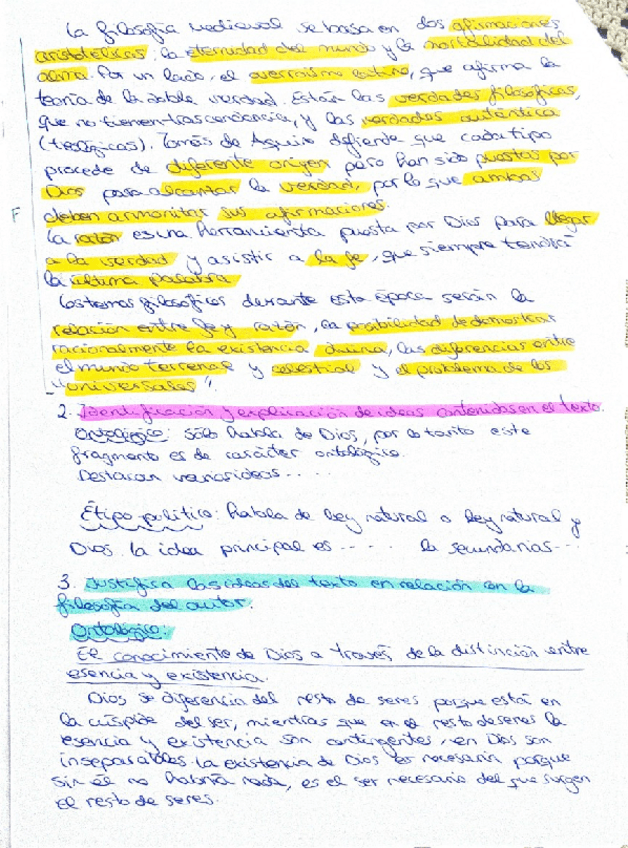 La filosofía medieval se basa en dos afirmaciones
aristotélicas: la eternidad del mundo y la mortalidad del
alma. Por un lado, el averroísmo latino, que afirma la
teoría de la doble verdad. Están las verdades filosóficas,
que no tienen trascendencia, y las verdades auténtica
(teológicas). Tomás de Aquino defiende que cada tipo
procede de diferente origen pero han sido puestas por
Dios para alcanzar la verdad, por lo que ambas
deben armonizar sus afirmaciones.
F
La razón es una herramienta puesta por Dios para llegar
a la verdad y asistir a la fe, que siempre tendrá
la última palabra
Los temas filosóficos durante esta época serán la
relación entre fe y razón, la posibilidad de demostrar
racionalmente la existencia divina, las diferencias entre
el mundo terrenal y celestial y el problema de los
"universales".
2. Identificación y explicación de ideas contenidas en el texto.
Ontológico: sólo habla de Dios, por lo tanto este
fragmento es de carácter ontológico.
Destacan varias ideas....
Étipo político: habla de ley natural o ley natural y
Dios. la idea principal es .... la secundarias...
3. Justifica las ideas del texto en relación con la
filosofía del autor.
Ontológico:
El conocimiento de Dios a través de la distinción entre
esencia y existencia.
Dios se diferencia del resto de seres porque está en
la cúspide del ser, mientras que en el resto de seres la
esencia y existencia son contingentes, en Dios son
inseparables. La existencia de Dios es necesaria porque
sin él no habría nada, es el ser necesario del que surgen
el resto de seres.